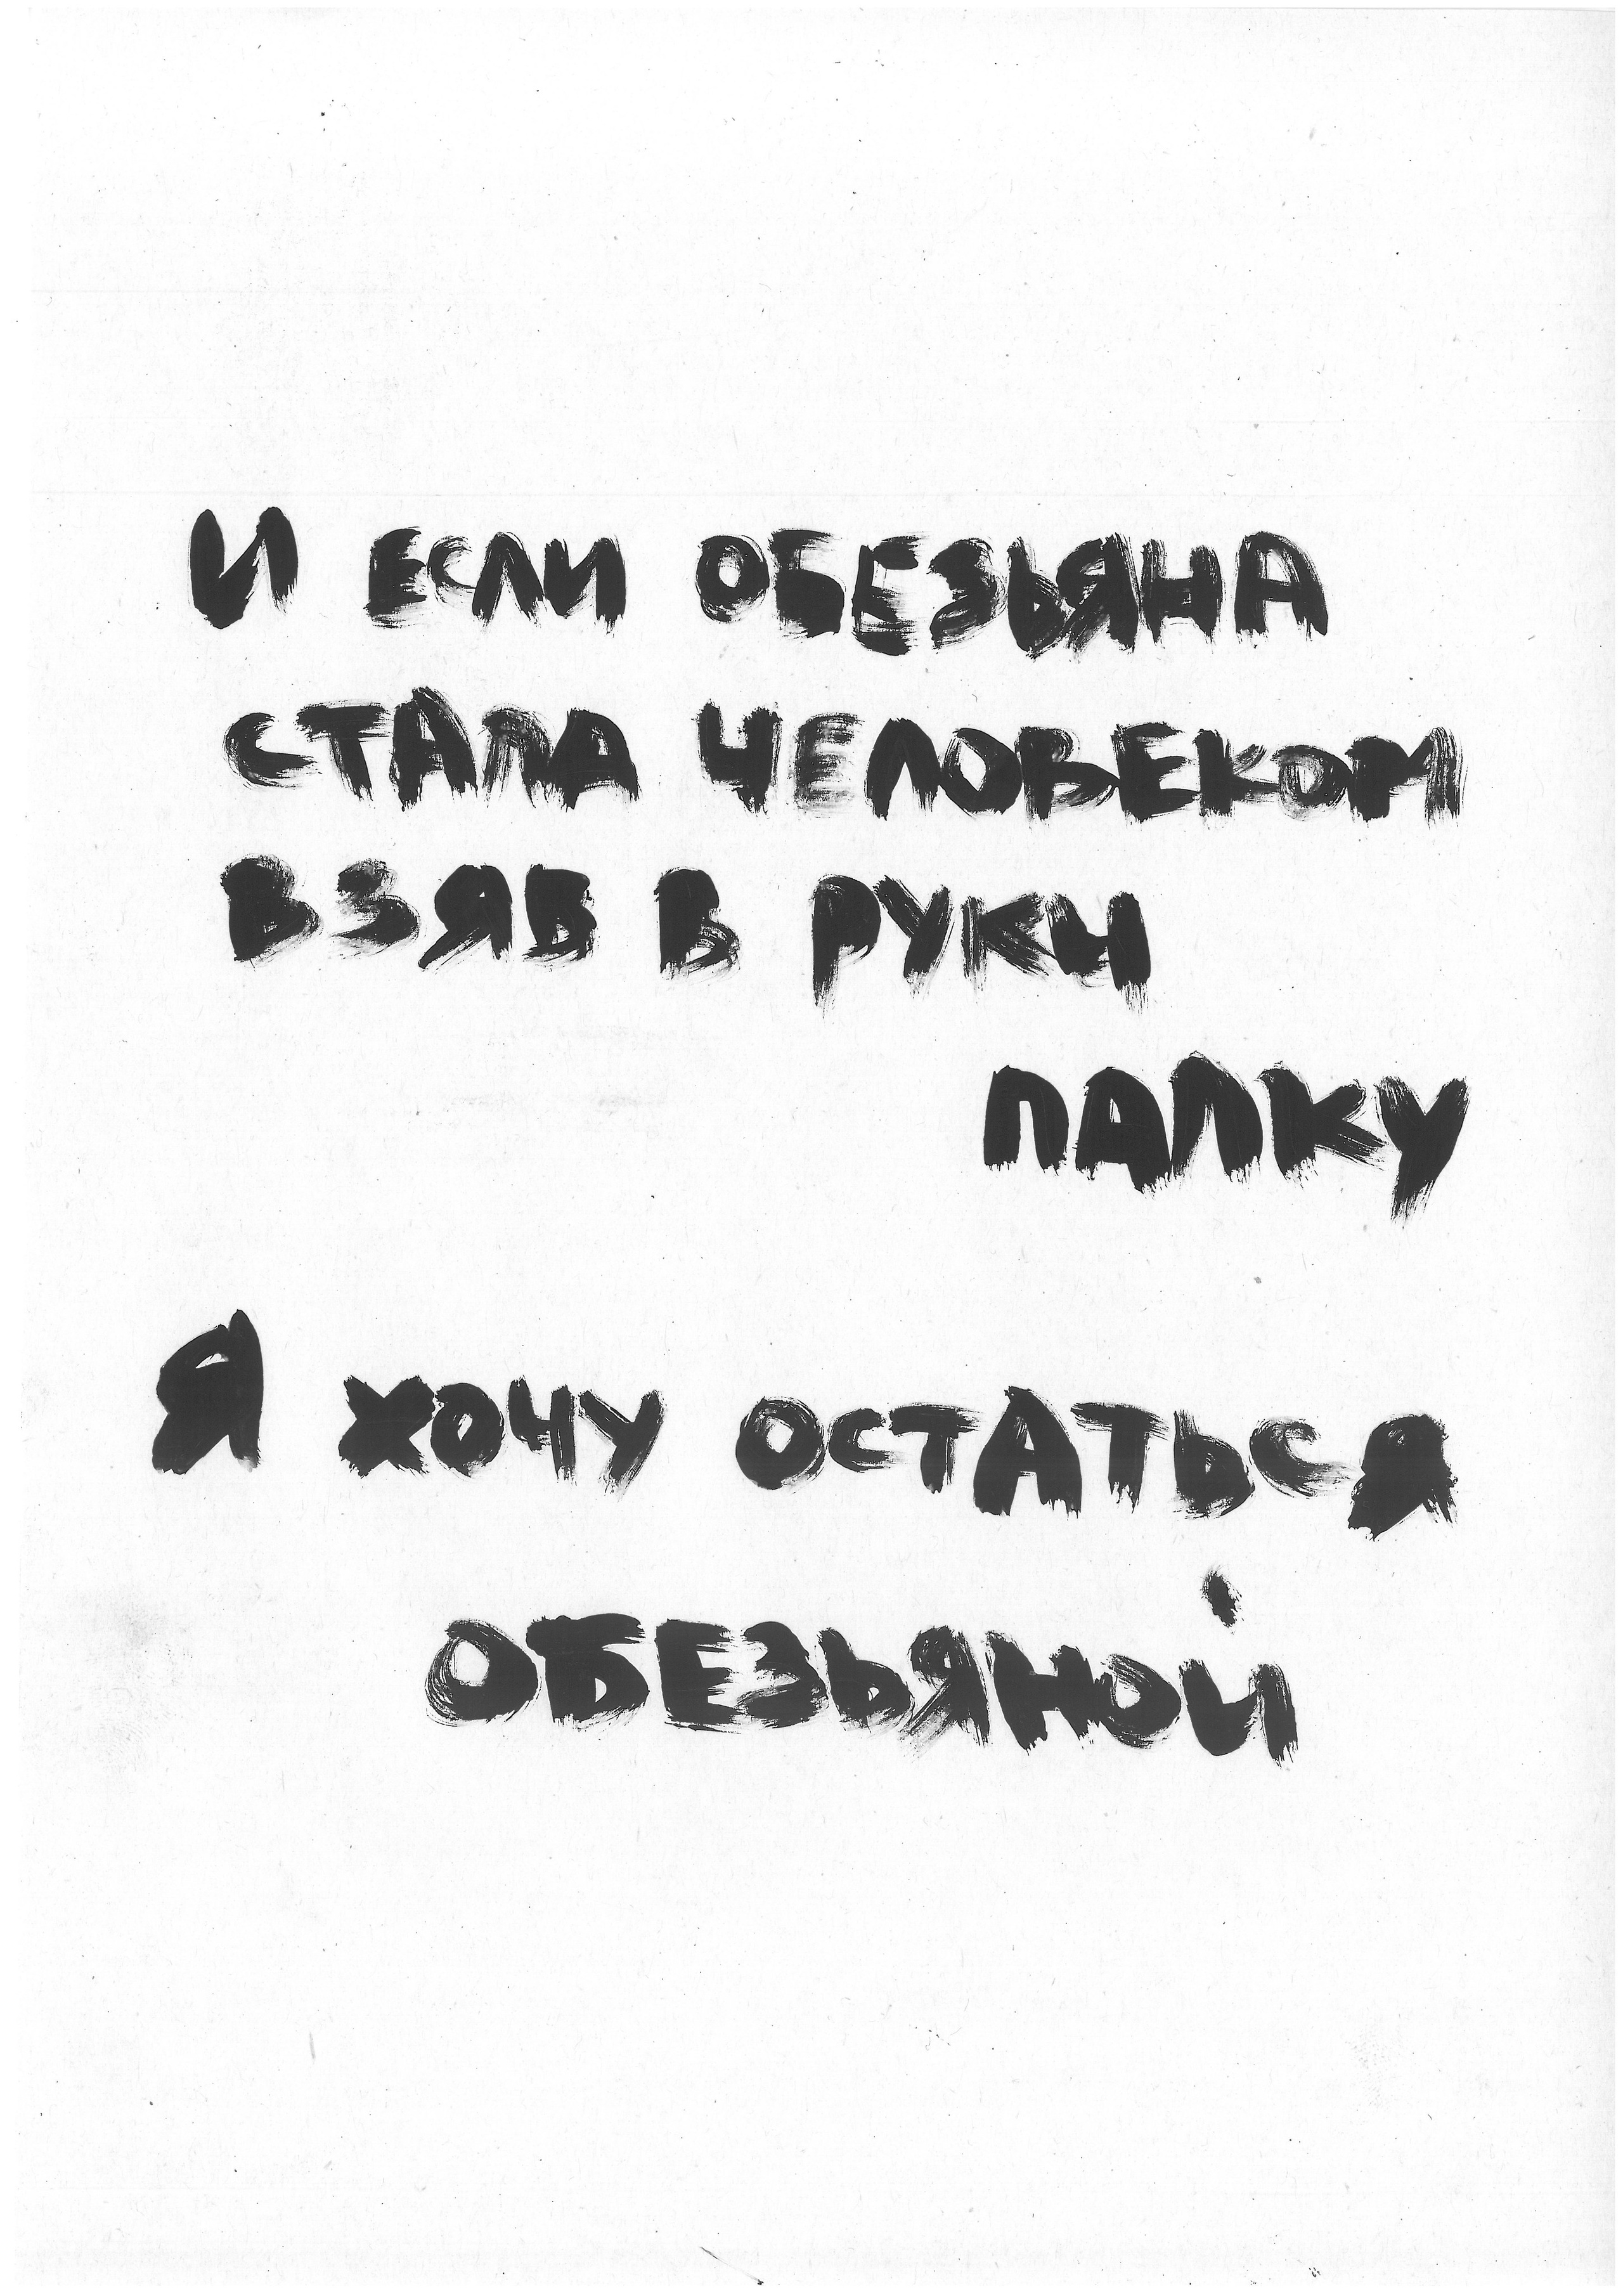 И ЕСЛИ ОБЕЗЬЯНА
СТАЛА ЧЕЛОВЕКОМ
ВЗЯВ В РУКИ
ПАЛКУ
Я ХОЧУ ОСТАТЬСЯ
ОБЕЗЬЯНОЙ